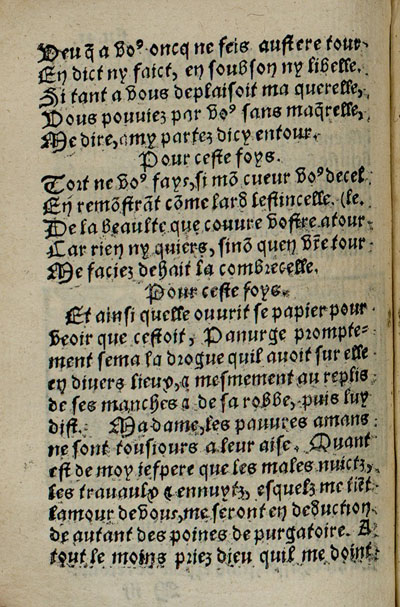 Veu q̃ a voꝰ oncq ne feis austere tour
En dict ny faict, en soubson ny libelle.
Si tant a vous deplaisoit ma querelle,
Vous pouuiez par voꝰ sans maq̃relle,
Me dire, amy partez dicy entour.
Pour ceste foys.
Tort ne voꝰ fays, si mõ cueur voꝰ decel
En remõstrãt cõme lard lestincelle. (le.
De la beaulte que couure vostre atour
Car rien ny quiers, sinõ quen vr̃e tour
Me faciez dehait la combrecelle.
Pour ceste foys.
Et ainsi quelle ouurit se papier pour
veoir que cestoit, Panurge prompte-
ment sema la drogue quil auoit sur elle
en diuers lieux, ⁊ mesmement au replis
de ses manches ⁊ de sa robbe, puis luy
dist. Madame, les pauures amans
ne sont tousiours a leur aise. Quant
est de moy iespere que les males nuictz,
les trauaulx ⁊ ennuytz, esquelz me tiẽt
lamour de vous, me seront en deduction
de autant des poines de purgatoire. A
tout le moins priez dieu quil me doint